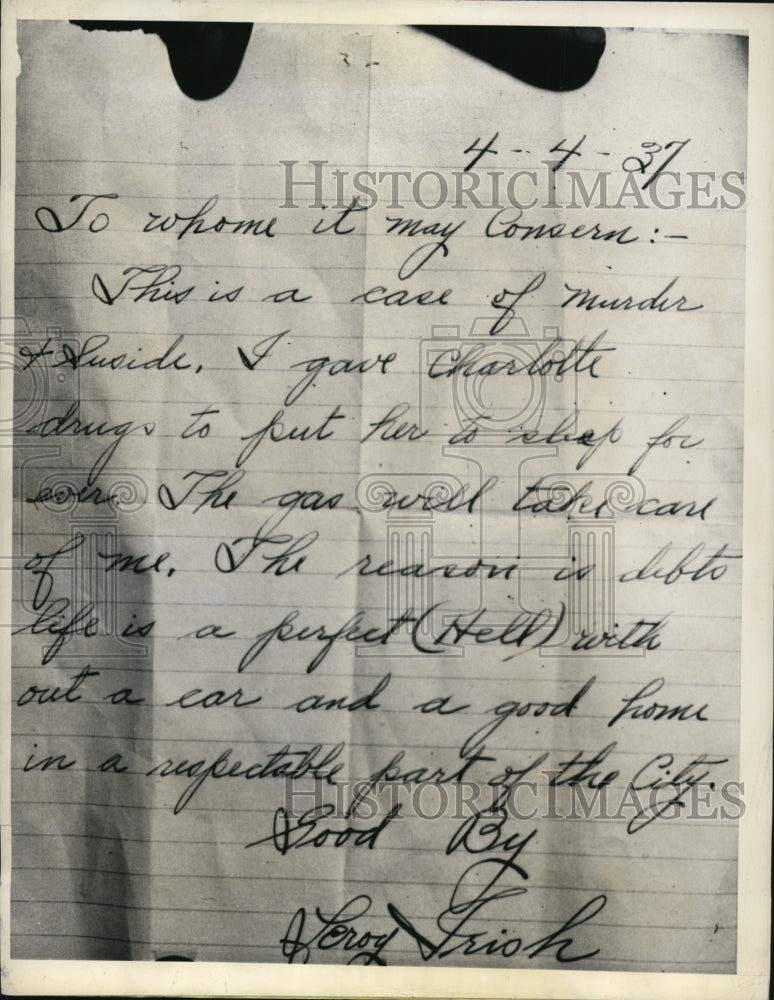 4 - 4 - 37
To whome it may Consern :-
This is a case of murder
& Suside. I gave Charlotte
drugs to put her to sleep for
ever. The gas will take care
of me. The reason is debts
life is a perfect (Hell) with
out a car and a good home
in a respectable part of the City.
Good By
Leroy Trish
HISTORICIMAGES
HISTORICIMAGES